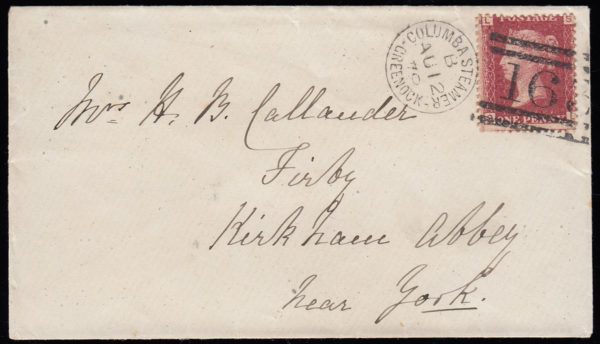 L S
POSTAGE
16
ONE PENNY
COLUMBA STEAMER
B
AU 12
79
GREENOCK
Mrs H. B. Callander
Firby
Kirkham Abbey
near York.